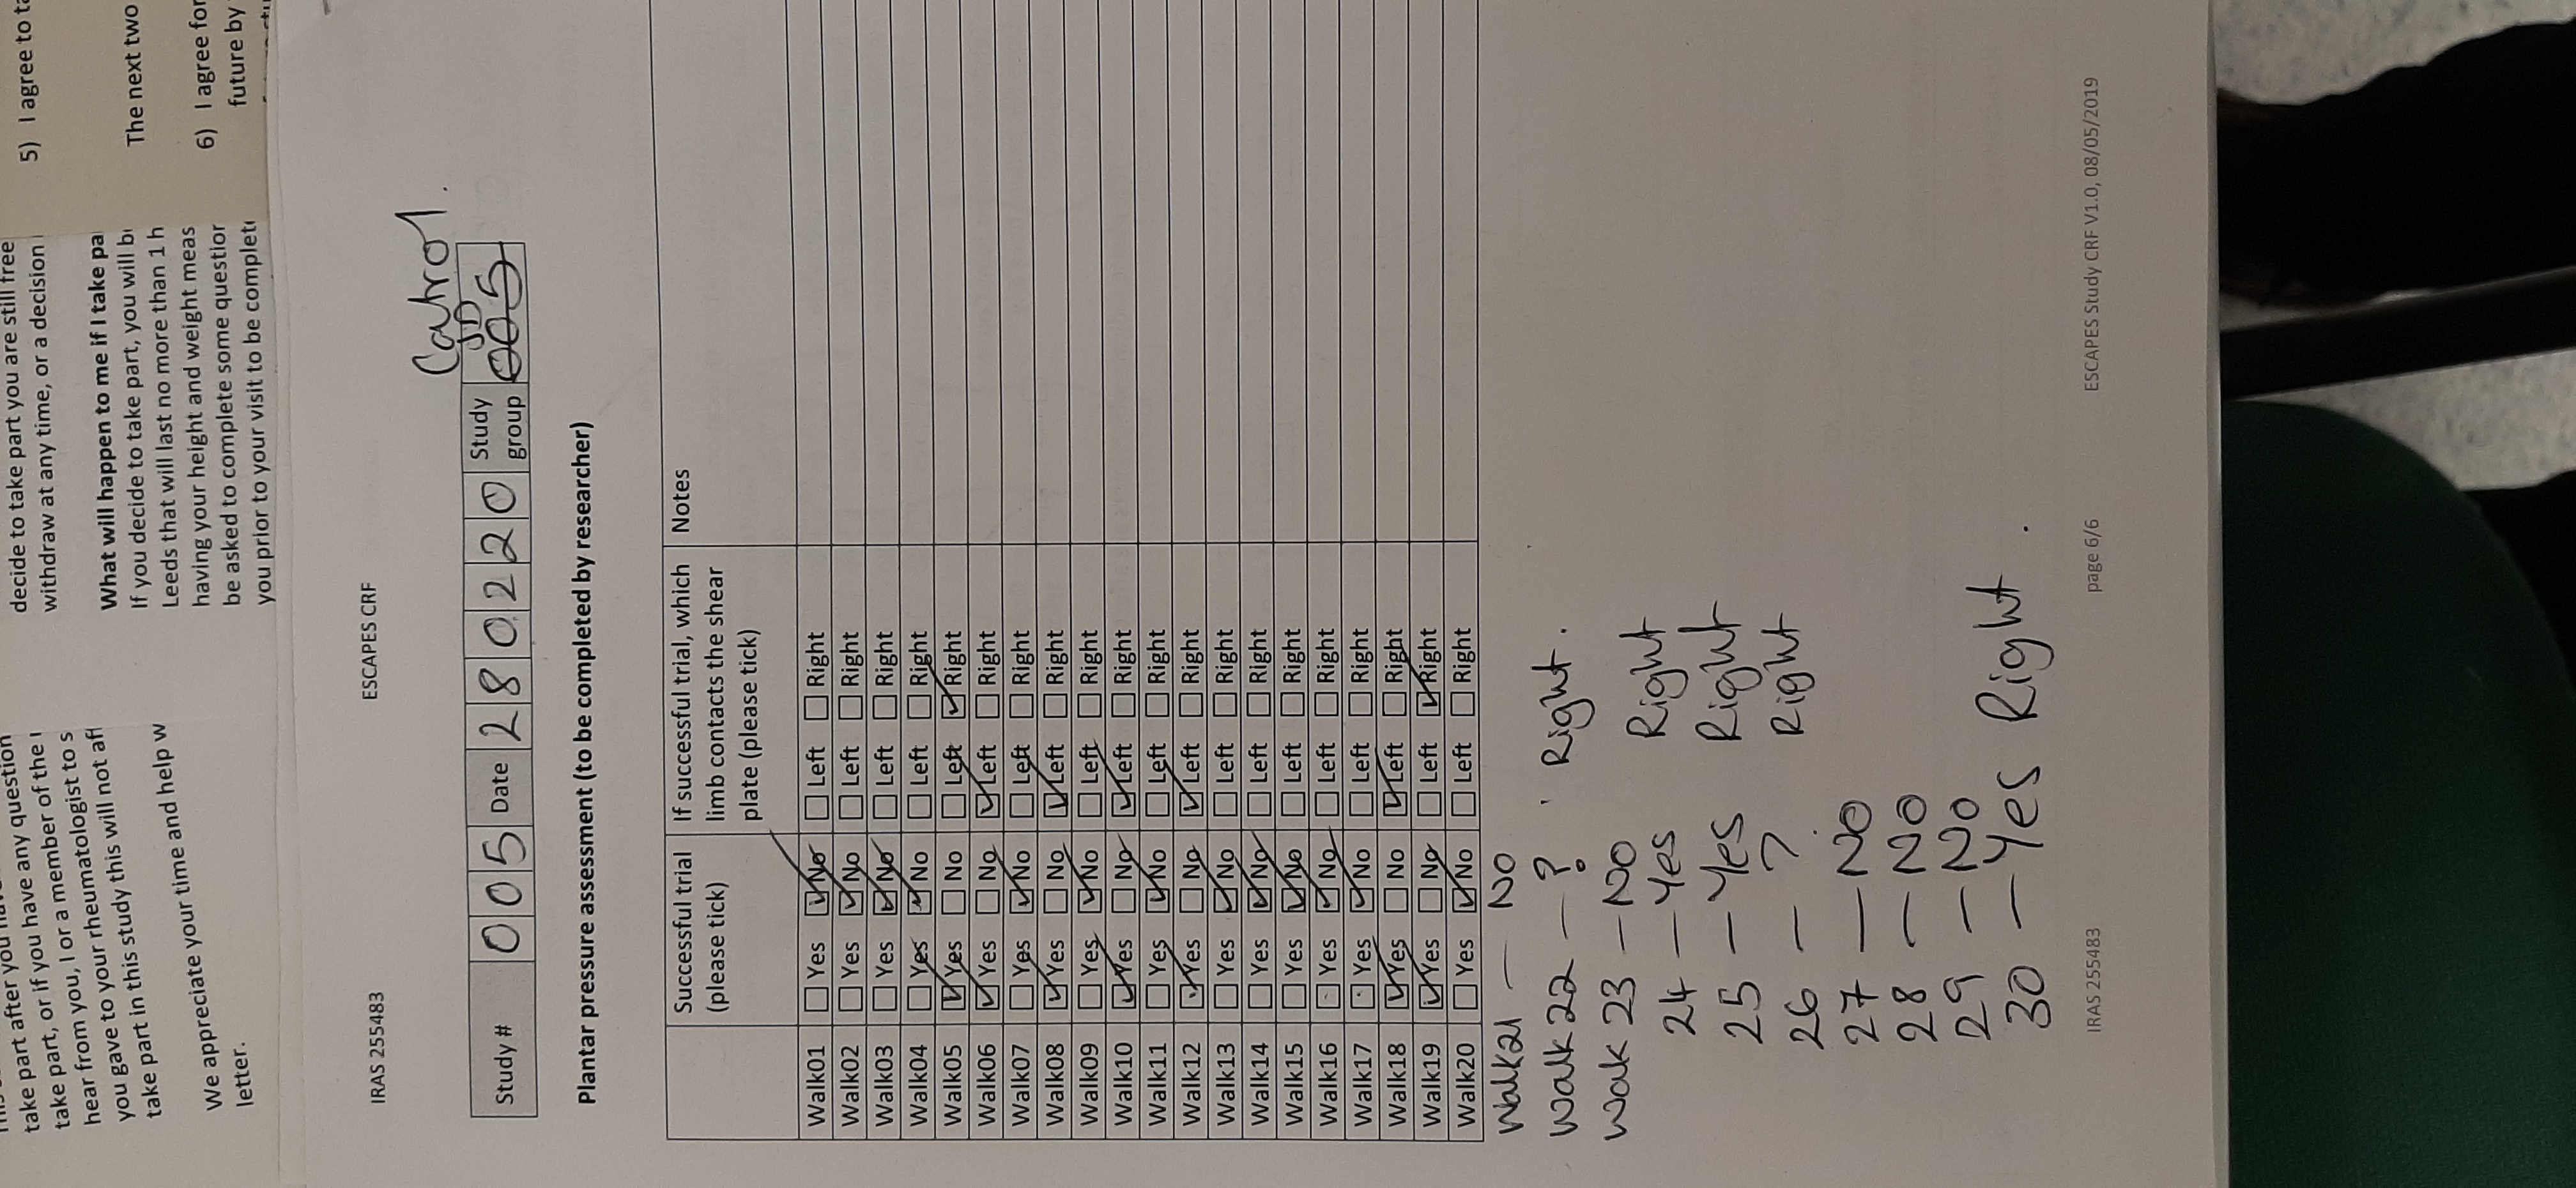 take part after you
take part, or if you have any question
hear from you, I or a member of the
you gave to your rheumatologist to s
take part in this study this will not aff
We appreciate your time and help w
letter.
decide to take part you are still free
withdraw at any time, or a decision
What will happen to me if I take pa
If you decide to take part, you will b
Leeds that will last no more than 1 h
having your height and weight meas
be asked to complete some question
you prior to your visit to be complete
5) I agree to ta
The next two
6) I agree for
future by
IRAS 255483 ESCAPES CRF
Catrol.
JD
Study # 005 Date 280220 Study group 005
Plantar pressure assessment (to be completed by researcher)
Successful trial (please tick) If successful trial, which limb contacts the shear plate (please tick) Notes
Walk01 ☐ Yes ☑ No ☐ Left ☐ Right
Walk02 ☐ Yes ☑ No ☐ Left ☐ Right
Walk03 ☐ Yes ☑ No ☐ Left ☐ Right
Walk04 ☐ Yes ☑ No ☐ Left ☐ Right
Walk05 ☑ Yes ☐ No ☐ Left ☑ Right
Walk06 ☑ Yes ☐ No ☑ Left ☐ Right
Walk07 ☐ Yes ☑ No ☐ Left ☐ Right
Walk08 ☑ Yes ☐ No ☑ Left ☐ Right
Walk09 ☐ Yes ☑ No ☐ Left ☐ Right
Walk10 ☑ Yes ☐ No ☑ Left ☐ Right
Walk11 ☐ Yes ☑ No ☐ Left ☐ Right
Walk12 ☑ Yes ☐ No ☑ Left ☐ Right
Walk13 ☐ Yes ☑ No ☐ Left ☐ Right
Walk14 ☐ Yes ☑ No ☐ Left ☐ Right
Walk15 ☐ Yes ☑ No ☐ Left ☐ Right
Walk16 ☐ Yes ☑ No ☐ Left ☐ Right
Walk17 ☐ Yes ☑ No ☐ Left ☐ Right
Walk18 ☑ Yes ☐ No ☑ Left ☐ Right
Walk19 ☑ Yes ☐ No ☐ Left ☑ Right
Walk20 ☐ Yes ☑ No ☐ Left ☐ Right
Walk21 — No
Walk 22 — ? Right.
Wak 23 — No
24 — Yes Right
25 — Yes Right
26 — ? Right
27 — No
28 — No
29 — No
30 — Yes Right.
IRAS 255483 page 6/6 ESCAPES Study CRF V1.0, 08/05/2019